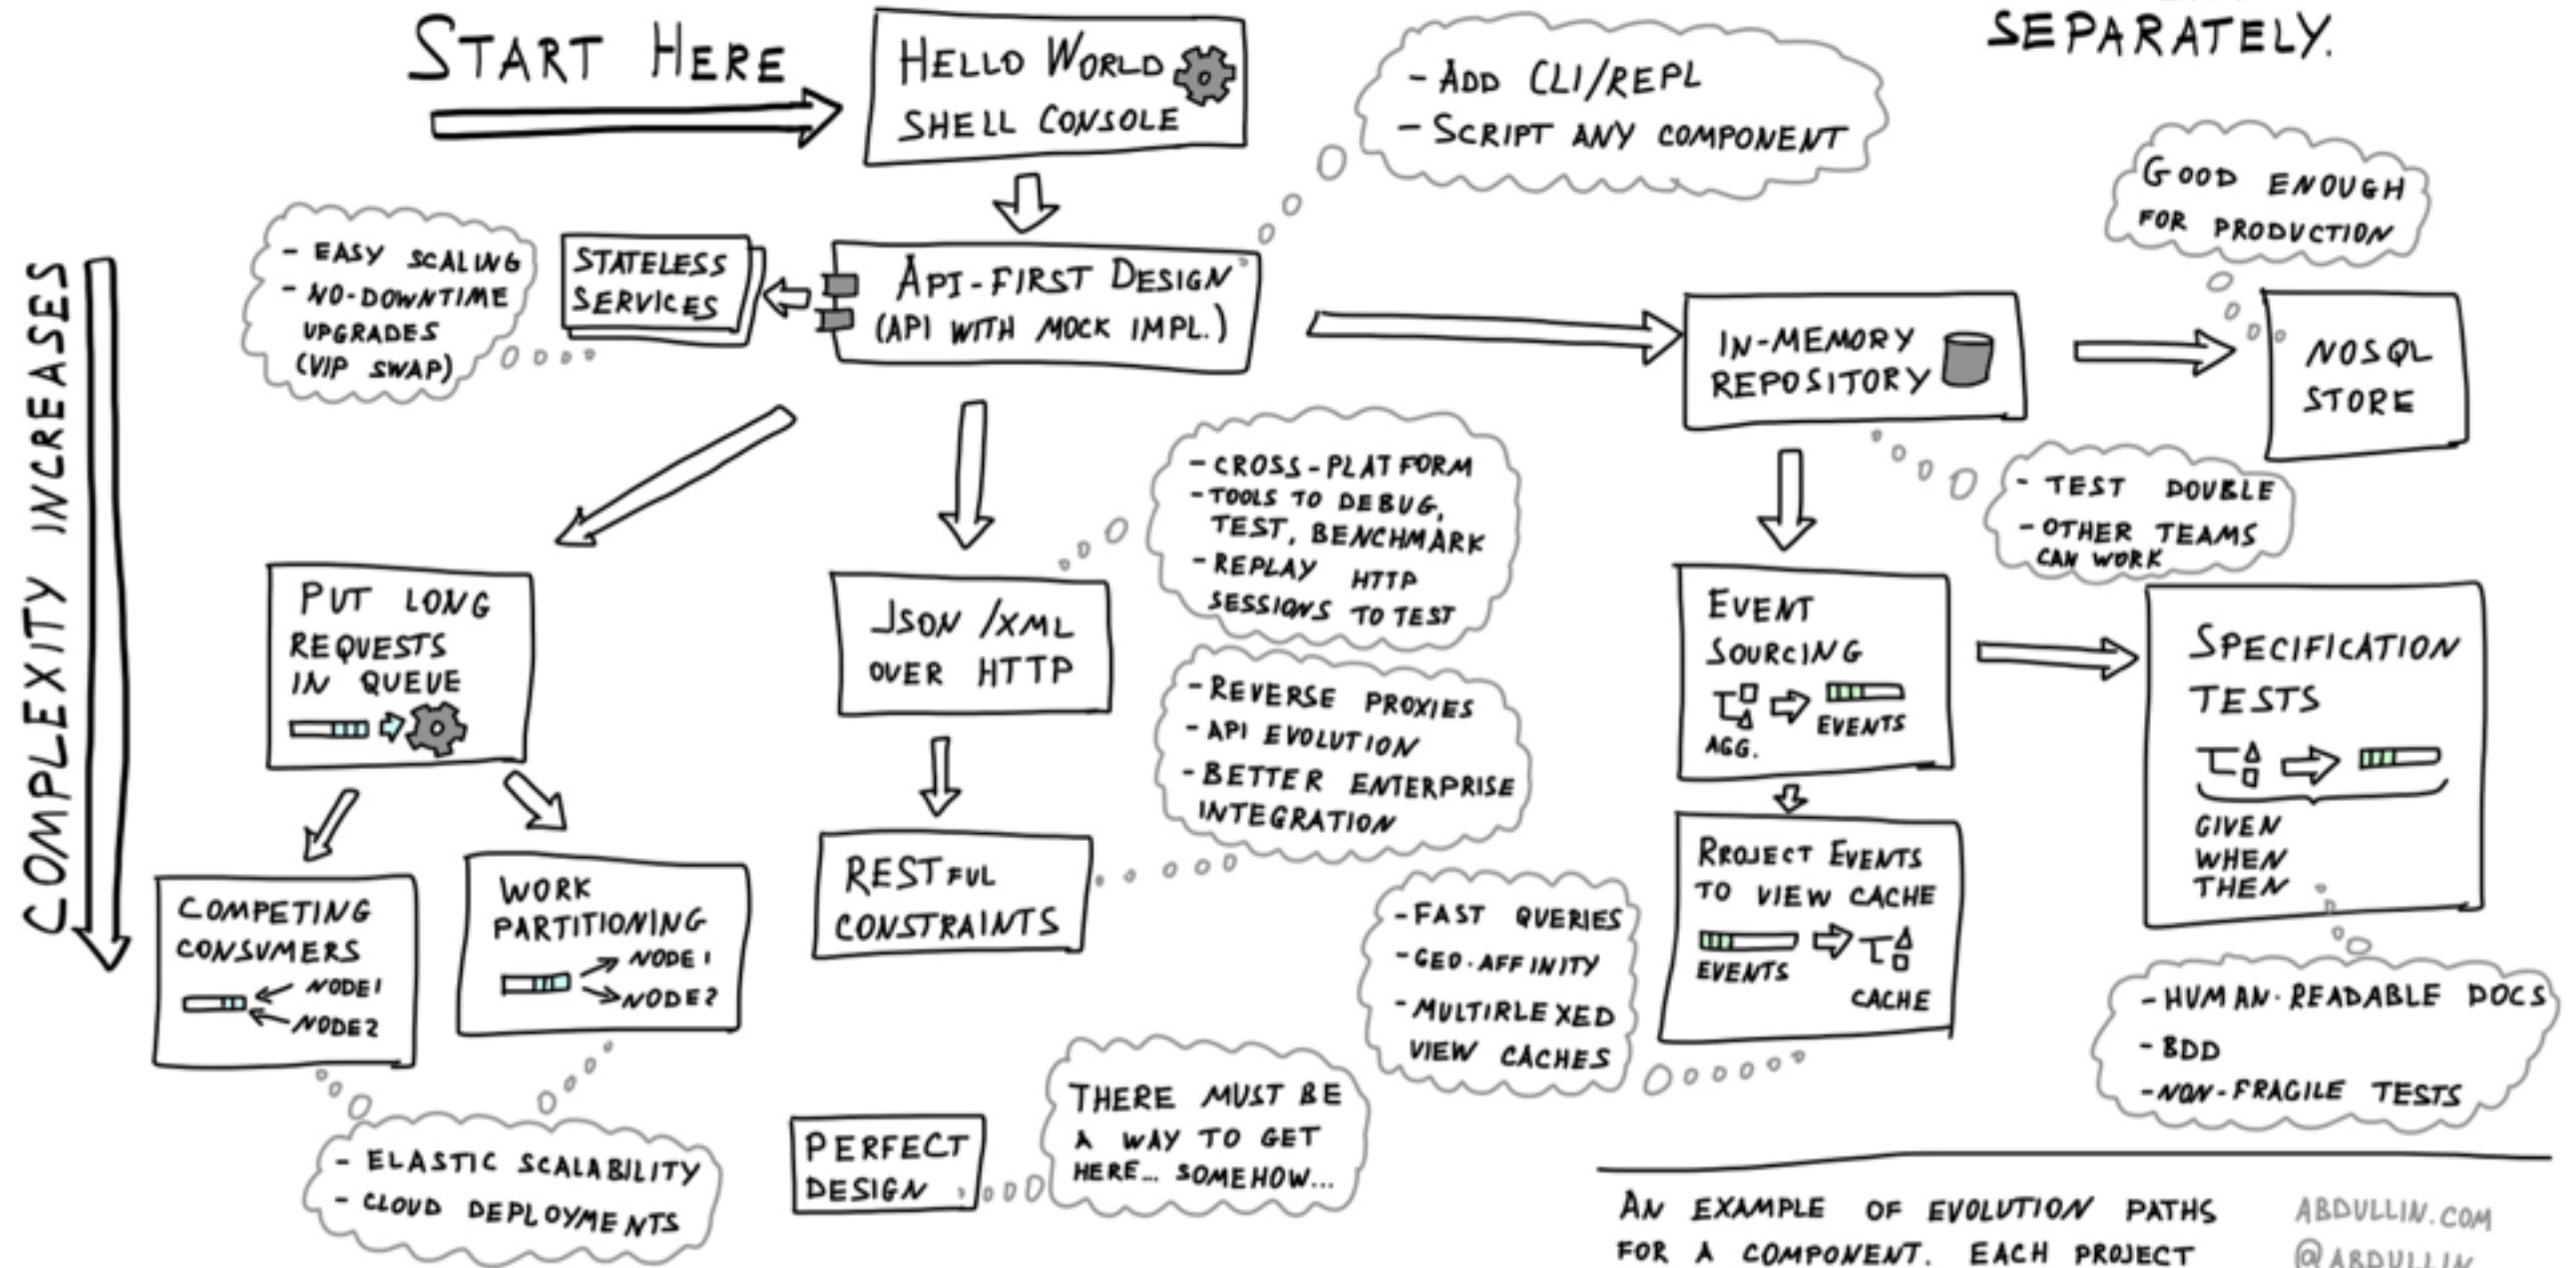 SEPARATELY.
START HERE
HELLO WORLD
SHELL CONSOLE
- ADD CLI/REPL
- SCRIPT ANY COMPONENT
GOOD ENOUGH
FOR PRODUCTION
- EASY SCALING
- NO-DOWNTIME
UPGRADES
(VIP SWAP)
STATELESS
SERVICES
API-FIRST DESIGN
(API WITH MOCK IMPL.)
IN-MEMORY
REPOSITORY
NOSQL
STORE
COMPLEXITY INCREASES
- CROSS-PLATFORM
- TOOLS TO DEBUG,
TEST, BENCHMARK
- REPLAY HTTP
SESSIONS TO TEST
- TEST DOUBLE
- OTHER TEAMS
CAN WORK
PUT LONG
REQUESTS
IN QUEUE
JSON/XML
OVER HTTP
EVENT
SOURCING
AGG.
EVENTS
SPECIFICATION
TESTS
GIVEN
WHEN
THEN
- REVERSE PROXIES
- API EVOLUTION
- BETTER ENTERPRISE
INTEGRATION
COMPETING
CONSUMERS
NODE1
NODE2
WORK
PARTITIONING
NODE1
NODE2
RESTFUL
CONSTRAINTS
- FAST QUERIES
- GEO-AFFINITY
- MULTIRLEXED
VIEW CACHES
RROJECT EVENTS
TO VIEW CACHE
EVENTS
CACHE
- HUMAN-READABLE DOCS
- BDD
- NON-FRAGILE TESTS
- ELASTIC SCALABILITY
- CLOUD DEPLOYMENTS
PERFECT
DESIGN
THERE MUST BE
A WAY TO GET
HERE... SOMEHOW...
AN EXAMPLE OF EVOLUTION PATHS
FOR A COMPONENT. EACH PROJECT
ABDULLIN.COM
@ABDULLIN